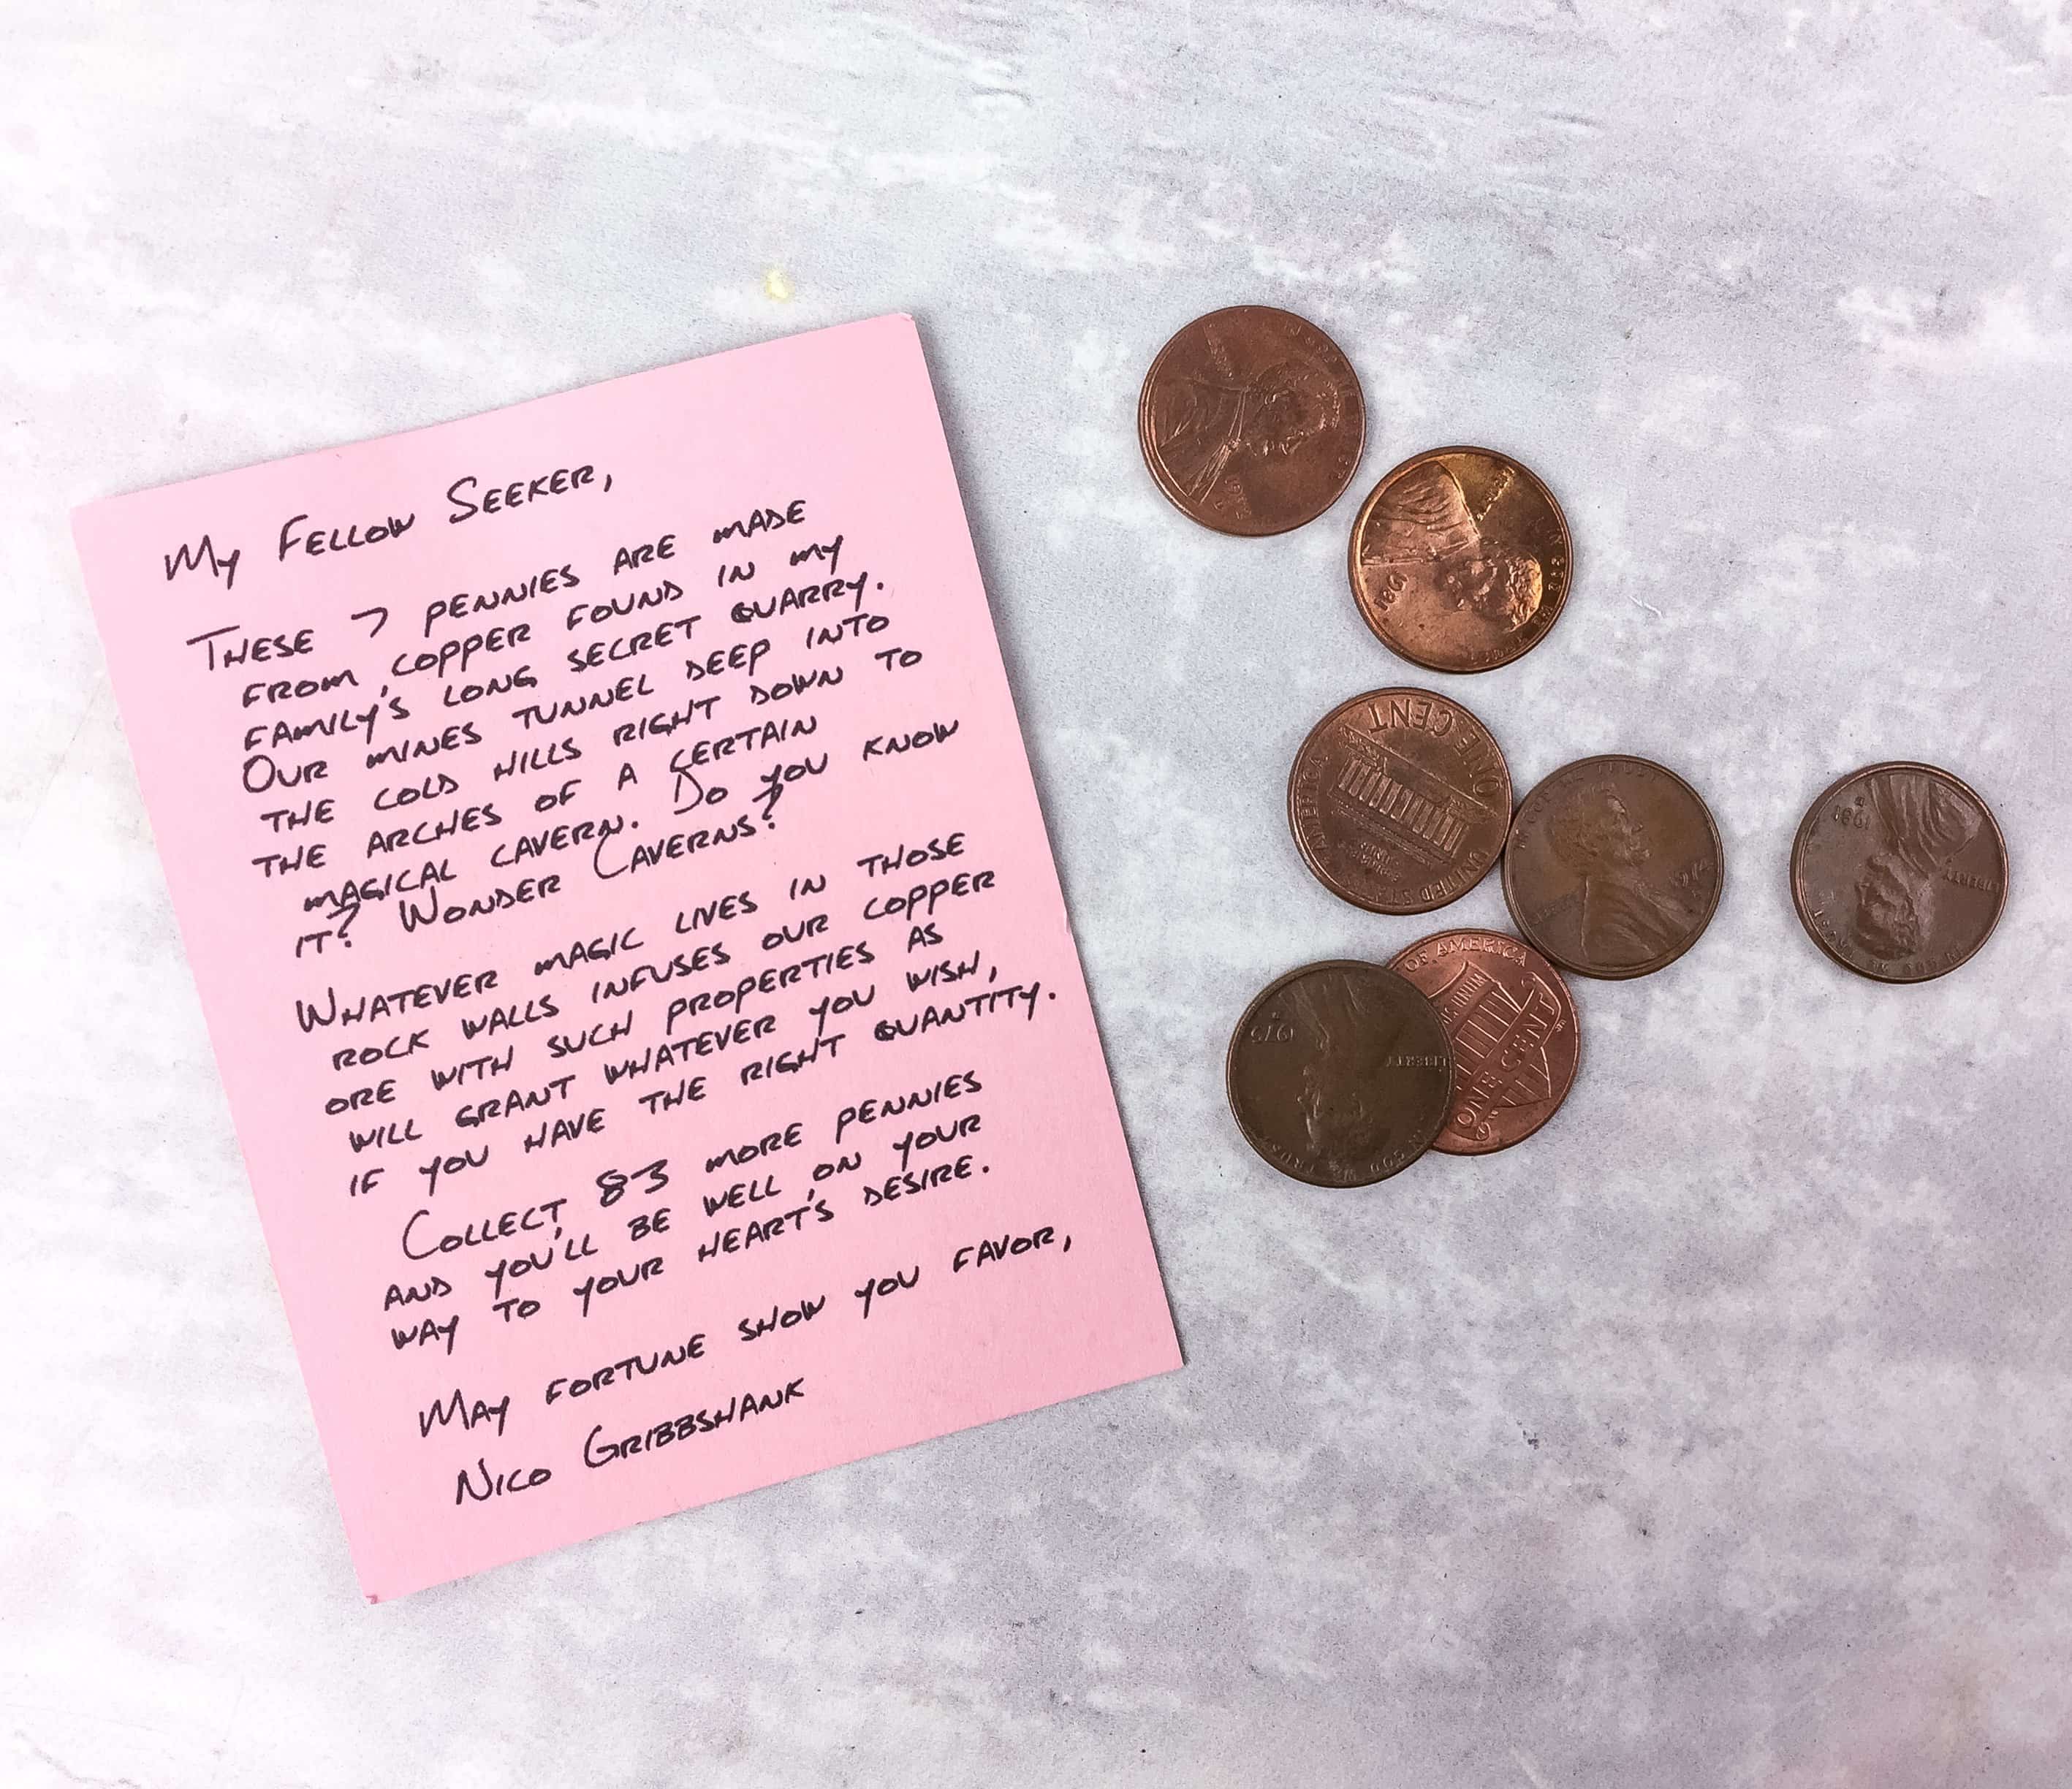 My Fellow Seeker,
These 7 pennies are made
from copper found in my
family's long secret quarry.
Our mines tunnel deep into
the cold hills right down to
the arches of a certain
magical cavern. Do you know
it? Wonder Caverns?
Whatever magic lives in those
rock walls infuses our copper
ore with such properties as
will grant whatever you wish,
if you have the right quantity.
Collect 83 more pennies
and you'll be well on your
way to your heart's desire.
May fortune show you favor,
Nico Gribbshank
1981
ONE CENT
UNITED ST
AMERICA
LIBERTY
1981
1975
LIBERTY
OF AMERICA
ONE CENT